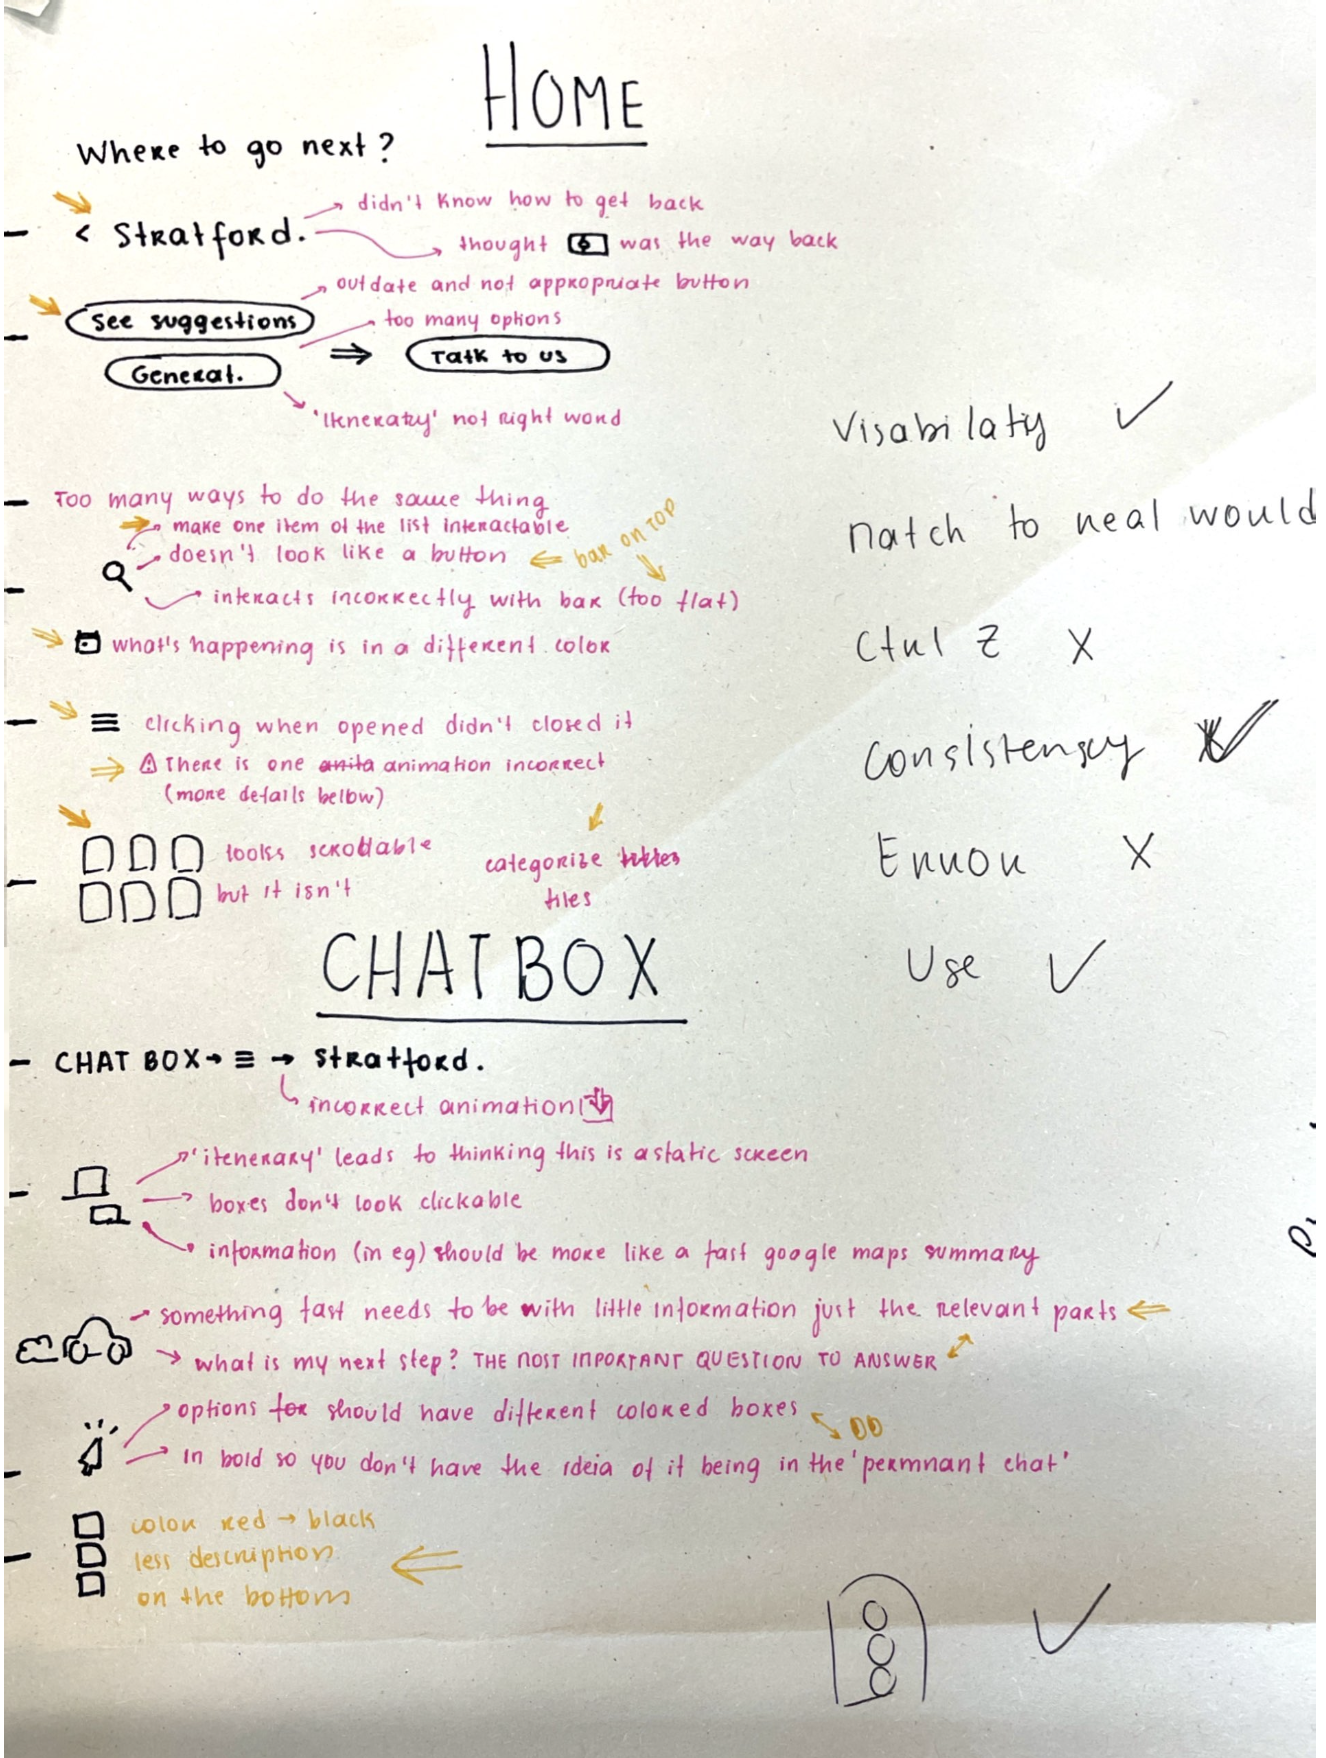 HOME
Where to go next?
didn't know how to get back
< Stratford.
thought was the way back
outdate and not appropriate button
See suggestions
too many options
Talk to us
General.
'Itenerary' not right word
Too many ways to do the same thing
make one item of the list interactable
doesn't look like a button
bar on TOP
interacts incorrectly with bar (too flat)
what's happening is in a different color
clicking when opened didn't closed it
There is one anita animation incorrect
(more details bellow)
looks scrollable
but it isn't
categorize
tiles
Visabilaty ✓
match to real would
Ctrl Z X
Consistenscy ✓
Error X
Use ✓
CHAT BOX
CHAT BOX → ≡ → Stratford.
incorrect animation
'itenerary' leads to thinking this is a static screen
boxes don't look clickable
information (in eg) should be more like a fast google maps summary
something fast needs to be with little information just the relevant parts
what is my next step? THE MOST IMPORTANT QUESTION TO ANSWER
options for should have different colored boxes
In bold so you don't have the ideia of it being in the 'permnant chat'
color red → black
less description
on the bottom
✓